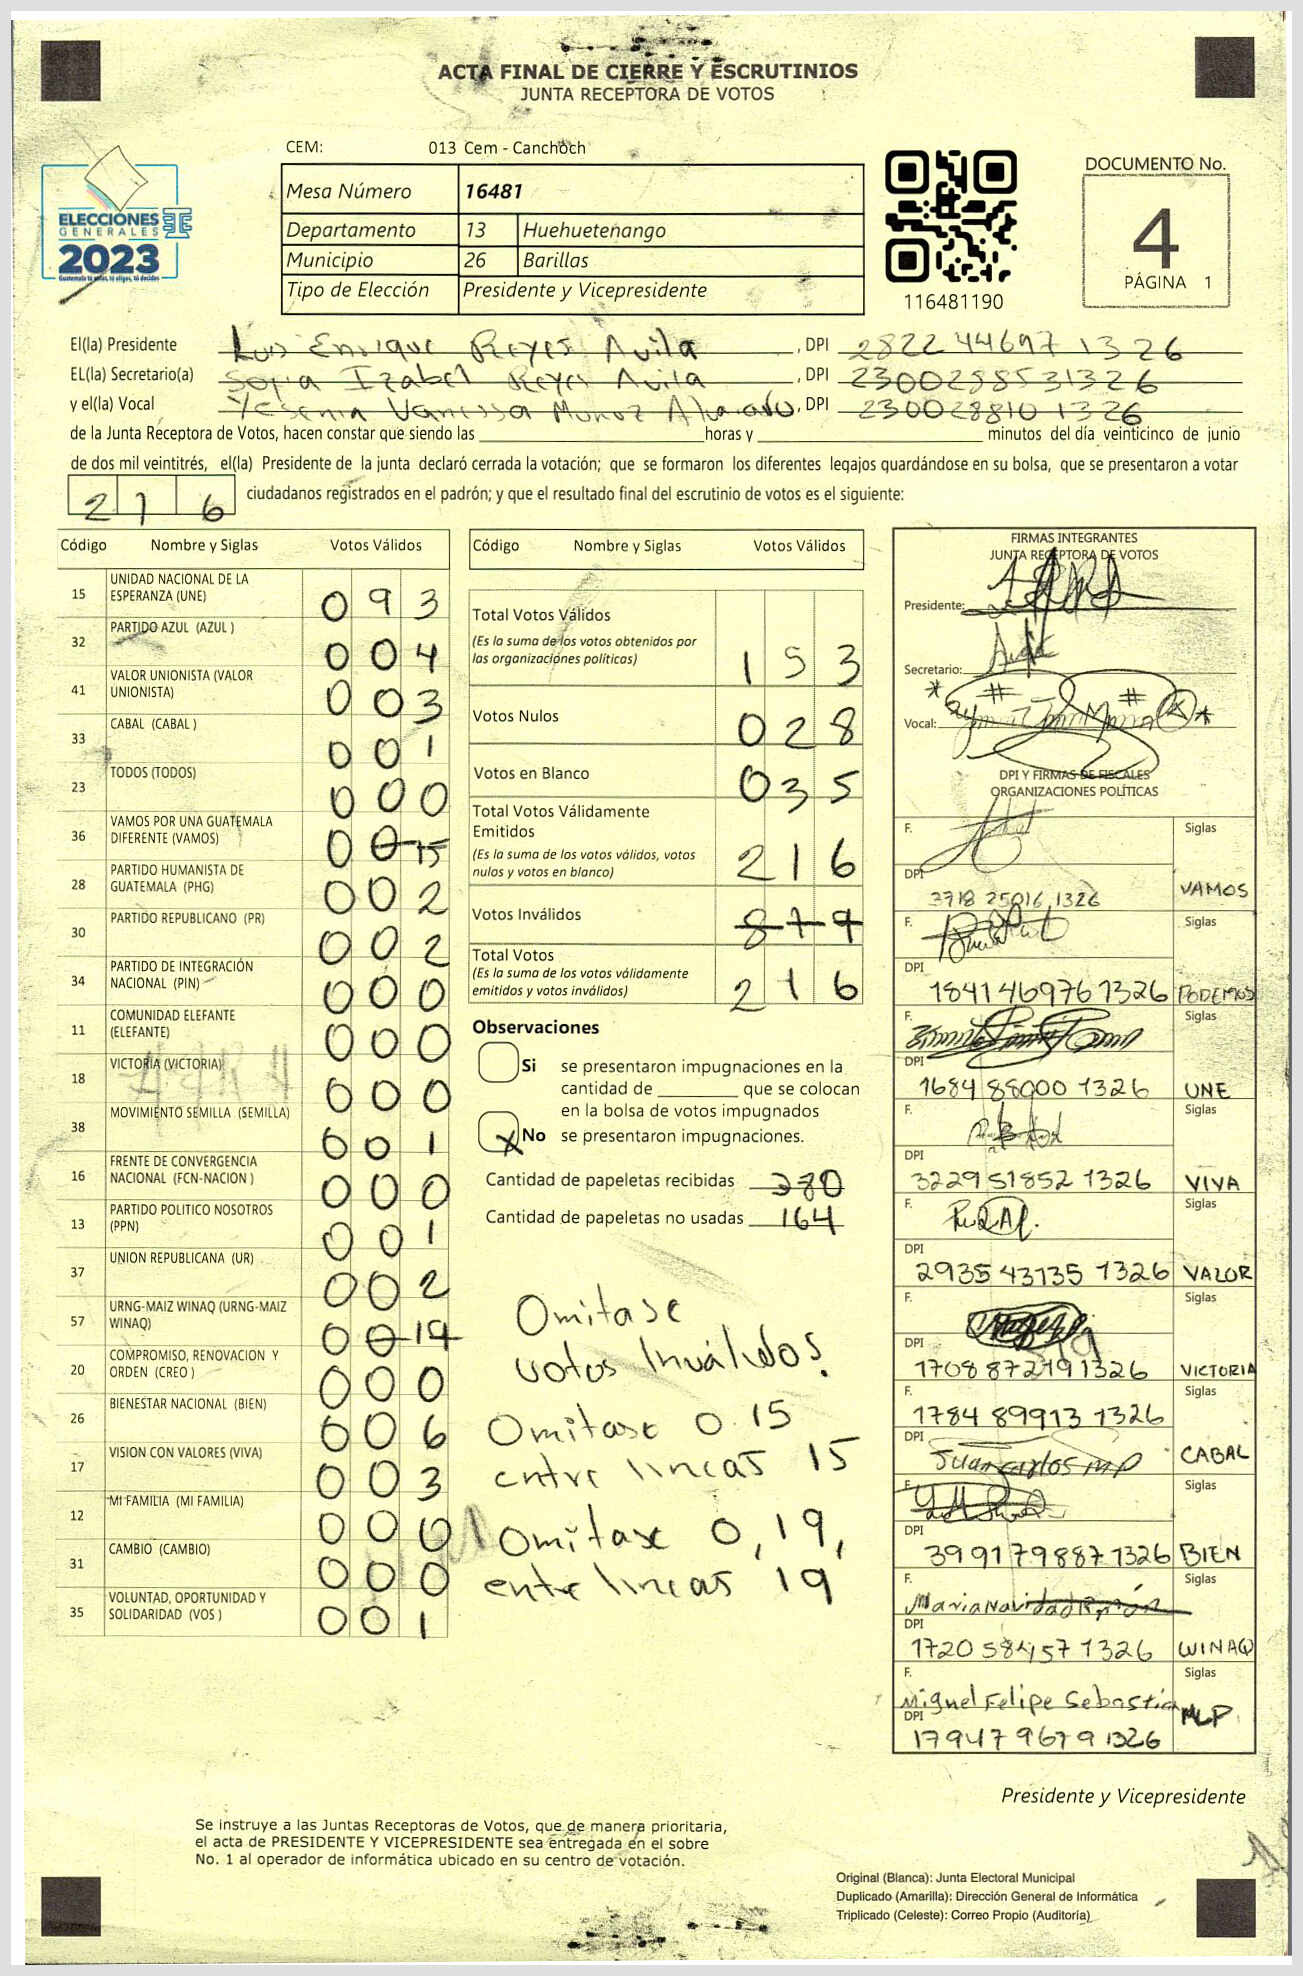 ACTA FINAL DE CIERRE Y ESCRUTINIOS
JUNTA RECEPTORA DE VOTOS
CEM: 013 Cem - Canchoch
ELECCIONES
GENERALES
2023
Guatemala tú eres, tú eliges, tú decides
Mesa Número 16481
Departamento 13 Huehuetenango
Municipio 26 Barillas
Tipo de Elección Presidente y Vicepresidente
116481190
DOCUMENTO No.
4
PÁGINA 1
El(la) Presidente Luis Enrique Reyes Avila , DPI 2822 44697 1326
EL(la) Secretario(a) Sofia Izabel Reyes Avila , DPI 2300288531326
y el(la) Vocal Yesenia Vanessa Muñoz Alvarado , DPI 230028810 1326
de la Junta Receptora de Votos, hacen constar que siendo las horas y minutos del día veinticinco de junio
de dos mil veintitrés, el(la) Presidente de la junta declaró cerrada la votación; que se formaron los diferentes legajos quardándose en su bolsa, que se presentaron a votar
216 ciudadanos registrados en el padrón; y que el resultado final del escrutinio de votos es el siguiente:
Código Nombre y Siglas Votos Válidos
15 UNIDAD NACIONAL DE LA ESPERANZA (UNE) 093
32 PARTIDO AZUL (AZUL ) 004
41 VALOR UNIONISTA (VALOR UNIONISTA) 003
33 CABAL (CABAL ) 001
23 TODOS (TODOS) 000
36 VAMOS POR UNA GUATEMALA DIFERENTE (VAMOS) 0 0 15
28 PARTIDO HUMANISTA DE GUATEMALA (PHG) 002
30 PARTIDO REPUBLICANO (PR) 002
34 PARTIDO DE INTEGRACIÓN NACIONAL (PIN) 000
11 COMUNIDAD ELEFANTE (ELEFANTE) 000
18 VICTORIA (VICTORIA) 000
38 MOVIMIENTO SEMILLA (SEMILLA) 001
16 FRENTE DE CONVERGENCIA NACIONAL (FCN-NACION ) 000
13 PARTIDO POLITICO NOSOTROS (PPN) 001
37 UNION REPUBLICANA (UR) 002
57 URNG-MAIZ WINAQ (URNG-MAIZ WINAQ) 0 0 19
20 COMPROMISO, RENOVACION Y ORDEN (CREO ) 000
26 BIENESTAR NACIONAL (BIEN) 006
17 VISION CON VALORES (VIVA) 003
12 MI FAMILIA (MI FAMILIA) 000
31 CAMBIO (CAMBIO) 000
35 VOLUNTAD, OPORTUNIDAD Y SOLIDARIDAD (VOS ) 001
Código Nombre y Siglas Votos Válidos
Total Votos Válidos
(Es la suma de los votos obtenidos por
las organizaciónes políticas) 153
Votos Nulos 028
Votos en Blanco 035
Total Votos Válidamente
Emitidos
(Es la suma de los votos válidos, votos
nulos y votos en blanco) 216
Votos Inválidos
Total Votos
(Es la suma de los votos válidamente
emitidos y votos inválidos) 216
Observaciones
Si se presentaron impugnaciones en la
cantidad de que se colocan
en la bolsa de votos impugnados
X No se presentaron impugnaciones.
Cantidad de papeletas recibidas 380
Cantidad de papeletas no usadas 164
Omitase
votos Inválidos
Omitase 0 15
entre lineas 15
Omitase 0, 19,
entre lineas 19
FIRMAS INTEGRANTES
JUNTA RECEPTORA DE VOTOS
Presidente:
Secretario:
Vocal:
DPI Y FIRMAS DE FISCALES
ORGANIZACIONES POLÍTICAS
F. Siglas
DPI 3718 25016 1326 VAMOS
F. Siglas
DPI 1841 46976 1326 PODEMOS
F. Siglas
DPI 1684 88000 1326 UNE
F. Siglas
DPI 3229 51852 1326 VIVA
F. Siglas
DPI 2935 43135 1326 VALOR
F. Siglas
DPI 1708 87219 1326 VICTORIA
F. 1784 89913 1326 Siglas
DPI Juan carlos MP CABAL
F. Siglas
DPI 3991 79887 1326 BIEN
F. Maria Navidad Siglas
DPI 1720 58457 1326 WINAQ
F. Miguel Felipe Sebastián Siglas
DPI 17947 9679 1326 MLP
Presidente y Vicepresidente
Se instruye a las Juntas Receptoras de Votos, que de manera prioritaria,
el acta de PRESIDENTE Y VICEPRESIDENTE sea entregada en el sobre
No. 1 al operador de informática ubicado en su centro de votación.
Original (Blanca): Junta Electoral Municipal
Duplicado (Amarilla): Dirección General de Informática
Triplicado (Celeste): Correo Propio (Auditoría)